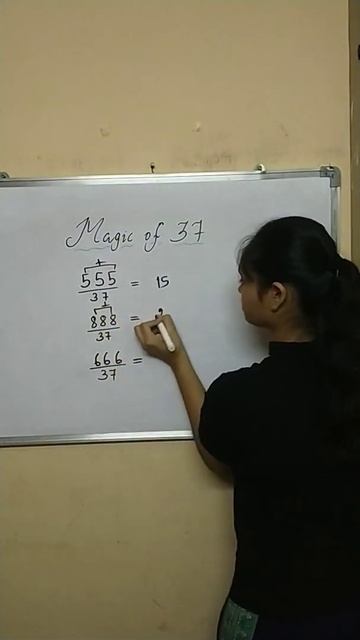 Magic of 37
+
555/37 = 15
+
888/37 =
666/37 =